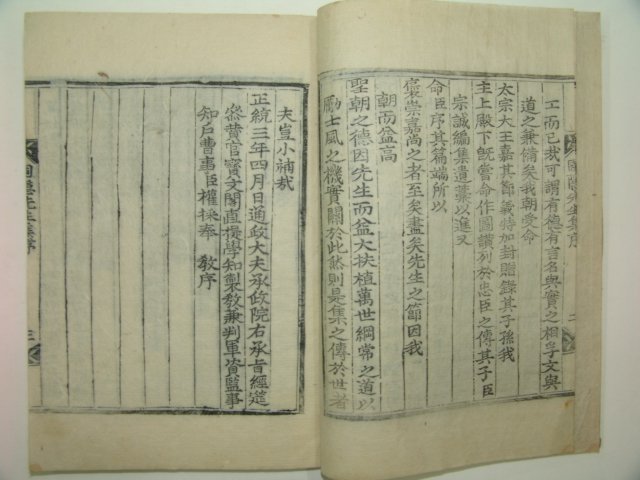 圃隱先生集序 二
工而已哉可謂有德有言名與實之相孚文與
道之兼備矣我朝受命
太宗大王嘉其節義特加封贈錄其子孫我
主上殿下旣嘗命作圖讚列於忠臣之傳其子臣
宗誠編集遺藁以進又
命臣序其篇端所以
褒崇嘉尚之者至矣盡矣先生之節因我
朝而益高
聖朝之德因先生而益大扶植萬世綱常之道以
勵士風之機實關於此然則是集之傳於世者
夫豈小補哉
正統三年四月日通政大夫承政院右承旨經筵
叅賛官寶文閣直提學知製敎兼判軍資監事
知戶曹事臣權採奉 敎序
圃隱先生集序 三